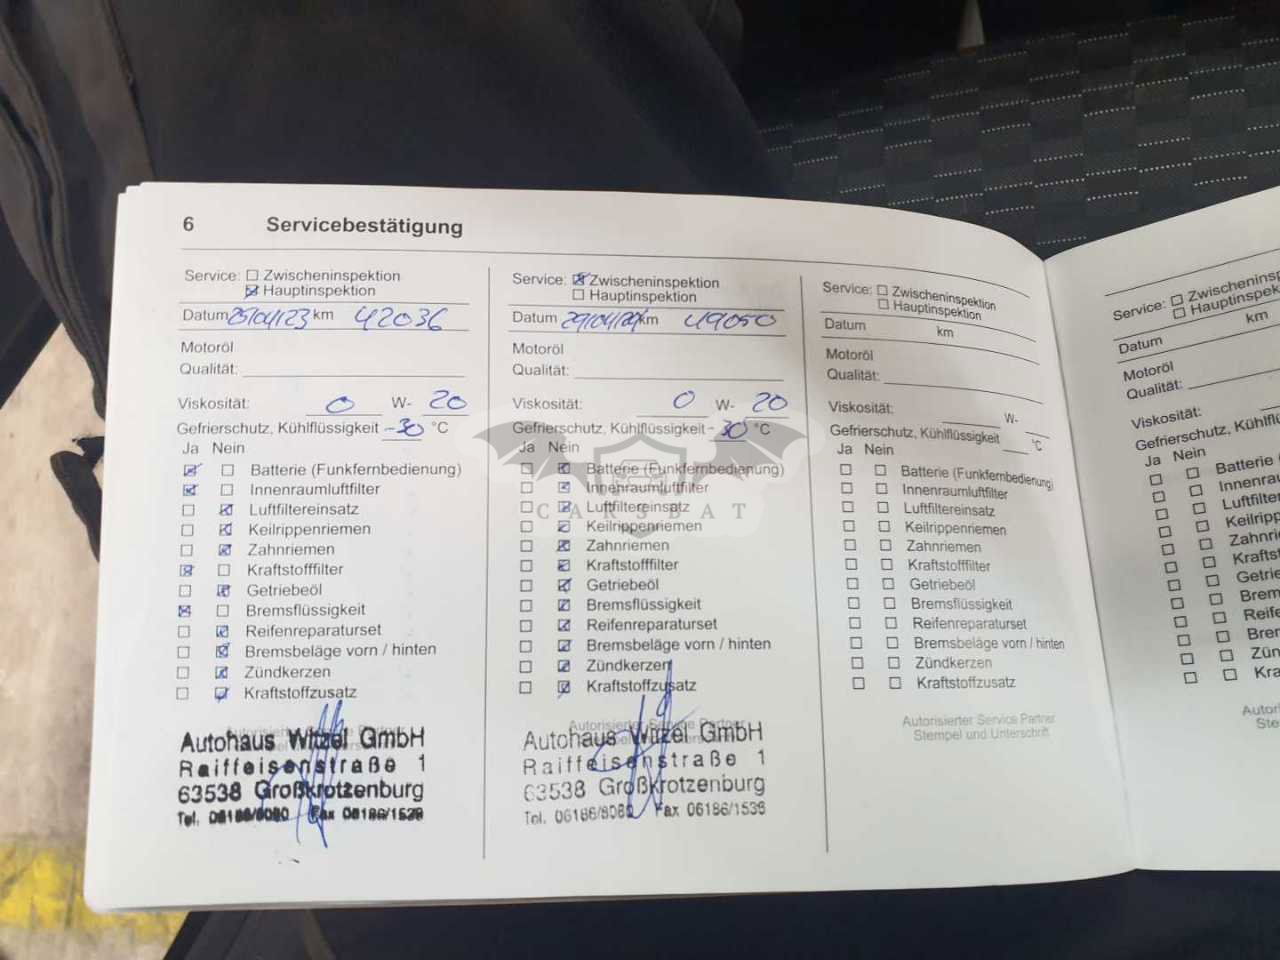 6 Servicebestätigung
Service: Zwischeninspektion
Hauptinspektion
Datum 25/04/23 km 42036
Motoröl
Qualität:
Viskosität: 0 W- 20
Gefrierschutz, Kühlflüssigkeit -30 °C
Ja Nein
Batterie (Funkfernbedienung)
Innenraumluftfilter
Luftfiltereinsatz
Keilrippenriemen
Zahnriemen
Kraftstofffilter
Getriebeöl
Bremsflüssigkeit
Reifenreparaturset
Bremsbeläge vorn / hinten
Zündkerzen
Kraftstoffzusatz
Autohaus Witzel GmbH
Raiffeisenstraße 1
63538 Großkrotzenburg
Tel. 06186/8080 Fax 06186/1539
Service: Zwischeninspektion
Hauptinspektion
Datum 29/04/24 km 49050
Motoröl
Qualität:
Viskosität: 0 W- 20
Gefrierschutz, Kühlflüssigkeit - 30 °C
Ja Nein
Batterie (Funkfernbedienung)
Innenraumluftfilter
Luftfiltereinsatz
Keilrippenriemen
Zahnriemen
Kraftstofffilter
Getriebeöl
Bremsflüssigkeit
Reifenreparaturset
Bremsbeläge vorn / hinten
Zündkerzen
Kraftstoffzusatz
Autorisierter Service Partner
Autohaus Witzel GmbH
Raiffeisenstraße 1
63538 Großkrotzenburg
Tel. 06186/8080 Fax 06186/1539
CARSBAT
Service: Zwischeninspektion
Hauptinspektion
Datum km
Motoröl
Qualität:
Viskosität: W-
Gefrierschutz, Kühlflüssigkeit °C
Ja Nein
Batterie (Funkfernbedienung)
Innenraumluftfilter
Luftfiltereinsatz
Keilrippenriemen
Zahnriemen
Kraftstofffilter
Getriebeöl
Bremsflüssigkeit
Reifenreparaturset
Bremsbeläge vorn / hinten
Zündkerzen
Kraftstoffzusatz
Autorisierter Service Partner
Stempel und Unterschrift
Service: Zwischeninsp
Hauptinspek
Datum km
Motoröl
Qualität:
Viskosität:
Gefrierschutz, Kühlflü
Ja Nein
Batterie
Innenrau
Luftfilter
Keilripp
Zahnri
Kraftst
Getrie
Brem
Reife
Bre
Zün
Kra
Autori
Ste